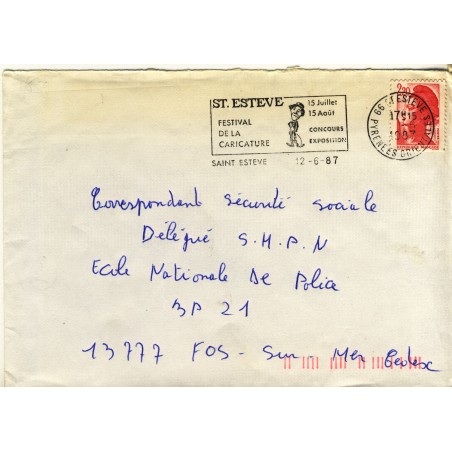 ST. ESTEVE
15 Juillet
15 Août
FESTIVAL
DE LA
CARICATURE
CONCOURS
EXPOSITION
SAINT ESTEVE 12-6-87
66 ST ESTEVE
PYRENEES ORIENTALES
17H15
1987
2,20
Correspondant Sécurité Sociale
Délégué S.M.P.N
Ecole Nationale De Police
BP 21
13777 FOS - Sur Mer Cedex